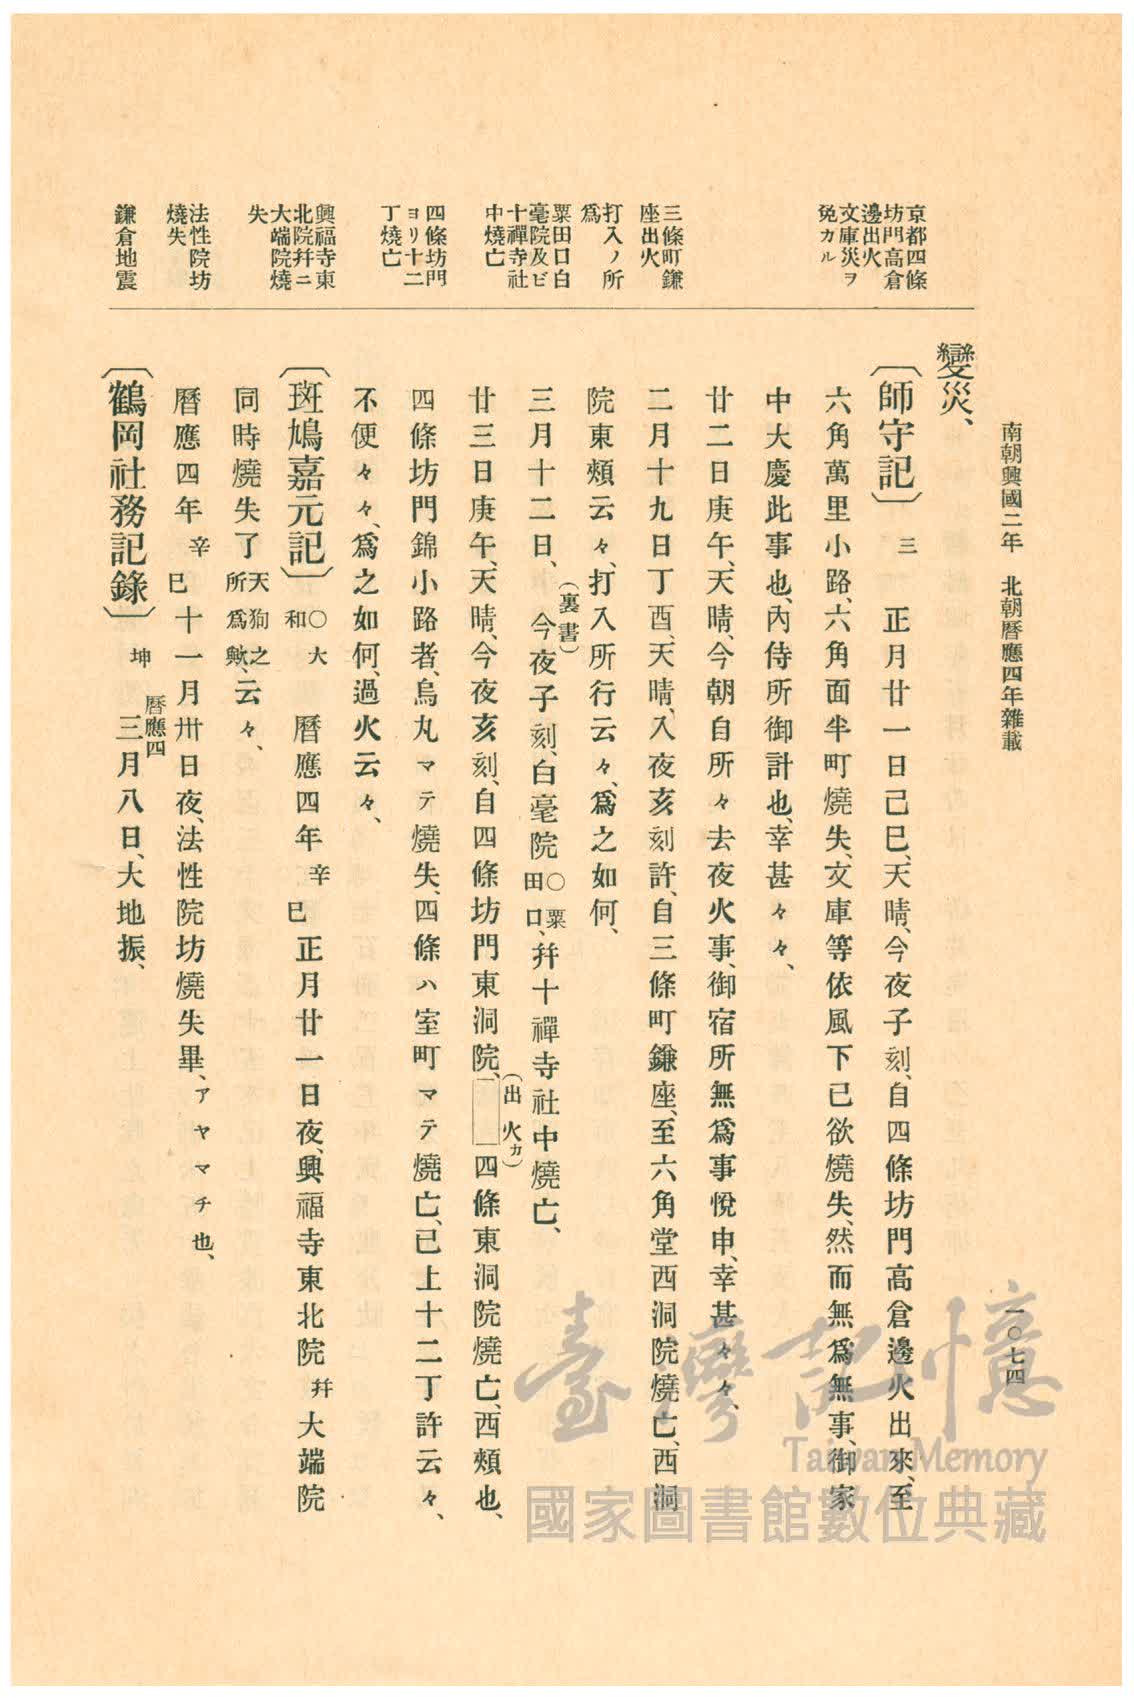 南朝興國二年　北朝曆應四年雜載
一〇七四
京都四條
坊門高倉
邊出火
文庫災ヲ
免カル
三條町鎌
座出火
打入ノ所
爲
粟田口白
毫院及ビ
十禪寺社
中燒亡
四條坊門
ヨリ十二
丁燒亡
興福寺東
北院幷ニ
大端院燒
失
法性院坊
燒失
鎌倉地震
變災、
〔師守記〕三　正月廿一日己巳、天晴、今夜子刻、自四條坊門高倉邊火出來、至
六角萬里小路、六角面半町燒失、文庫等依風下已欲燒失、然而無爲無事、御家
中大慶此事也、內侍所御計也、幸甚々々、
廿二日庚午、天晴、今朝自所々去夜火事、御宿所無爲事悅申、幸甚々々、
二月十九日丁酉、天晴、入夜亥刻許、自三條町鎌座、至六角堂西洞院燒亡、西洞
院東頰云々、打入所行云々、爲之如何、
（裏書）
三月十二日、今夜子刻、白毫院〇粟田口、幷十禪寺社中燒亡、
廿三日庚午、天晴、今夜亥刻、自四條坊門東洞院、（出火カ）四條東洞院燒亡、西頰也、
四條坊門錦小路者、烏丸マテ燒失、四條ハ室町マテ燒亡、已上十二丁許云々、
不便々々、爲之如何、過火云々、
〔斑鳩嘉元記〕〇大和　曆應四年辛巳正月廿一日夜、興福寺東北院幷大端院
同時燒失了天狗之所爲歟、云々、
曆應四年辛巳十一月卅日夜、法性院坊燒失畢、アヤマチ也、
〔鶴岡社務記錄〕坤　曆應四三月八日、大地振、
臺灣記憶
Taiwan Memory
國家圖書館數位典藏